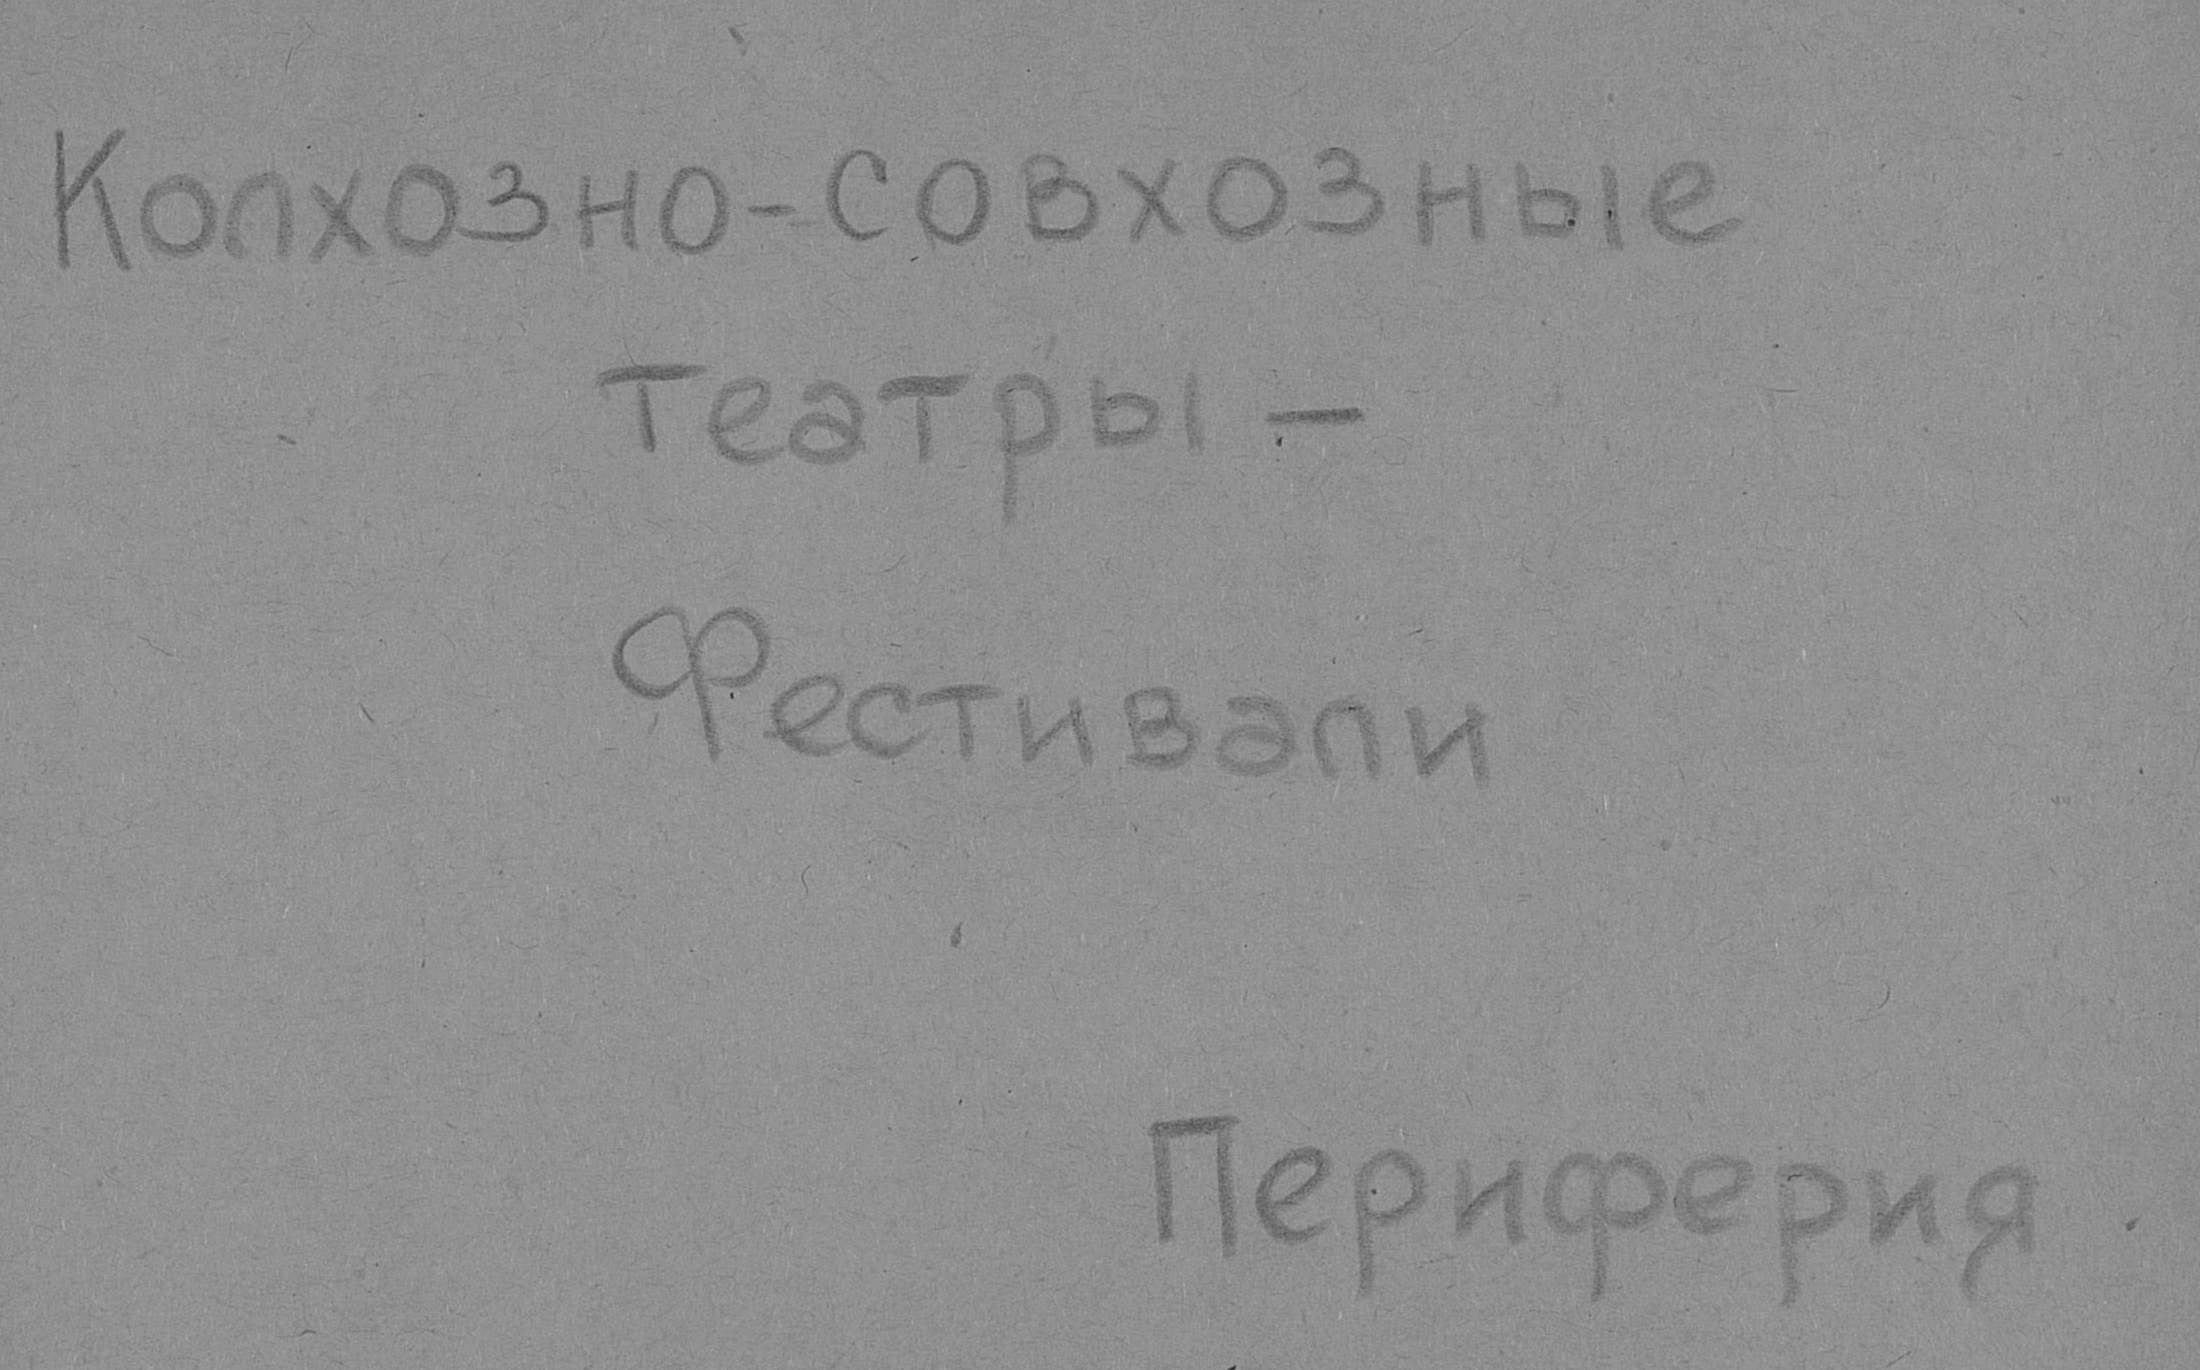 Колхозно-совхозные
театры -
Фестивали
Периферия